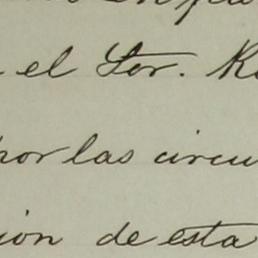 el Sor. R
por las circu
ion de esta